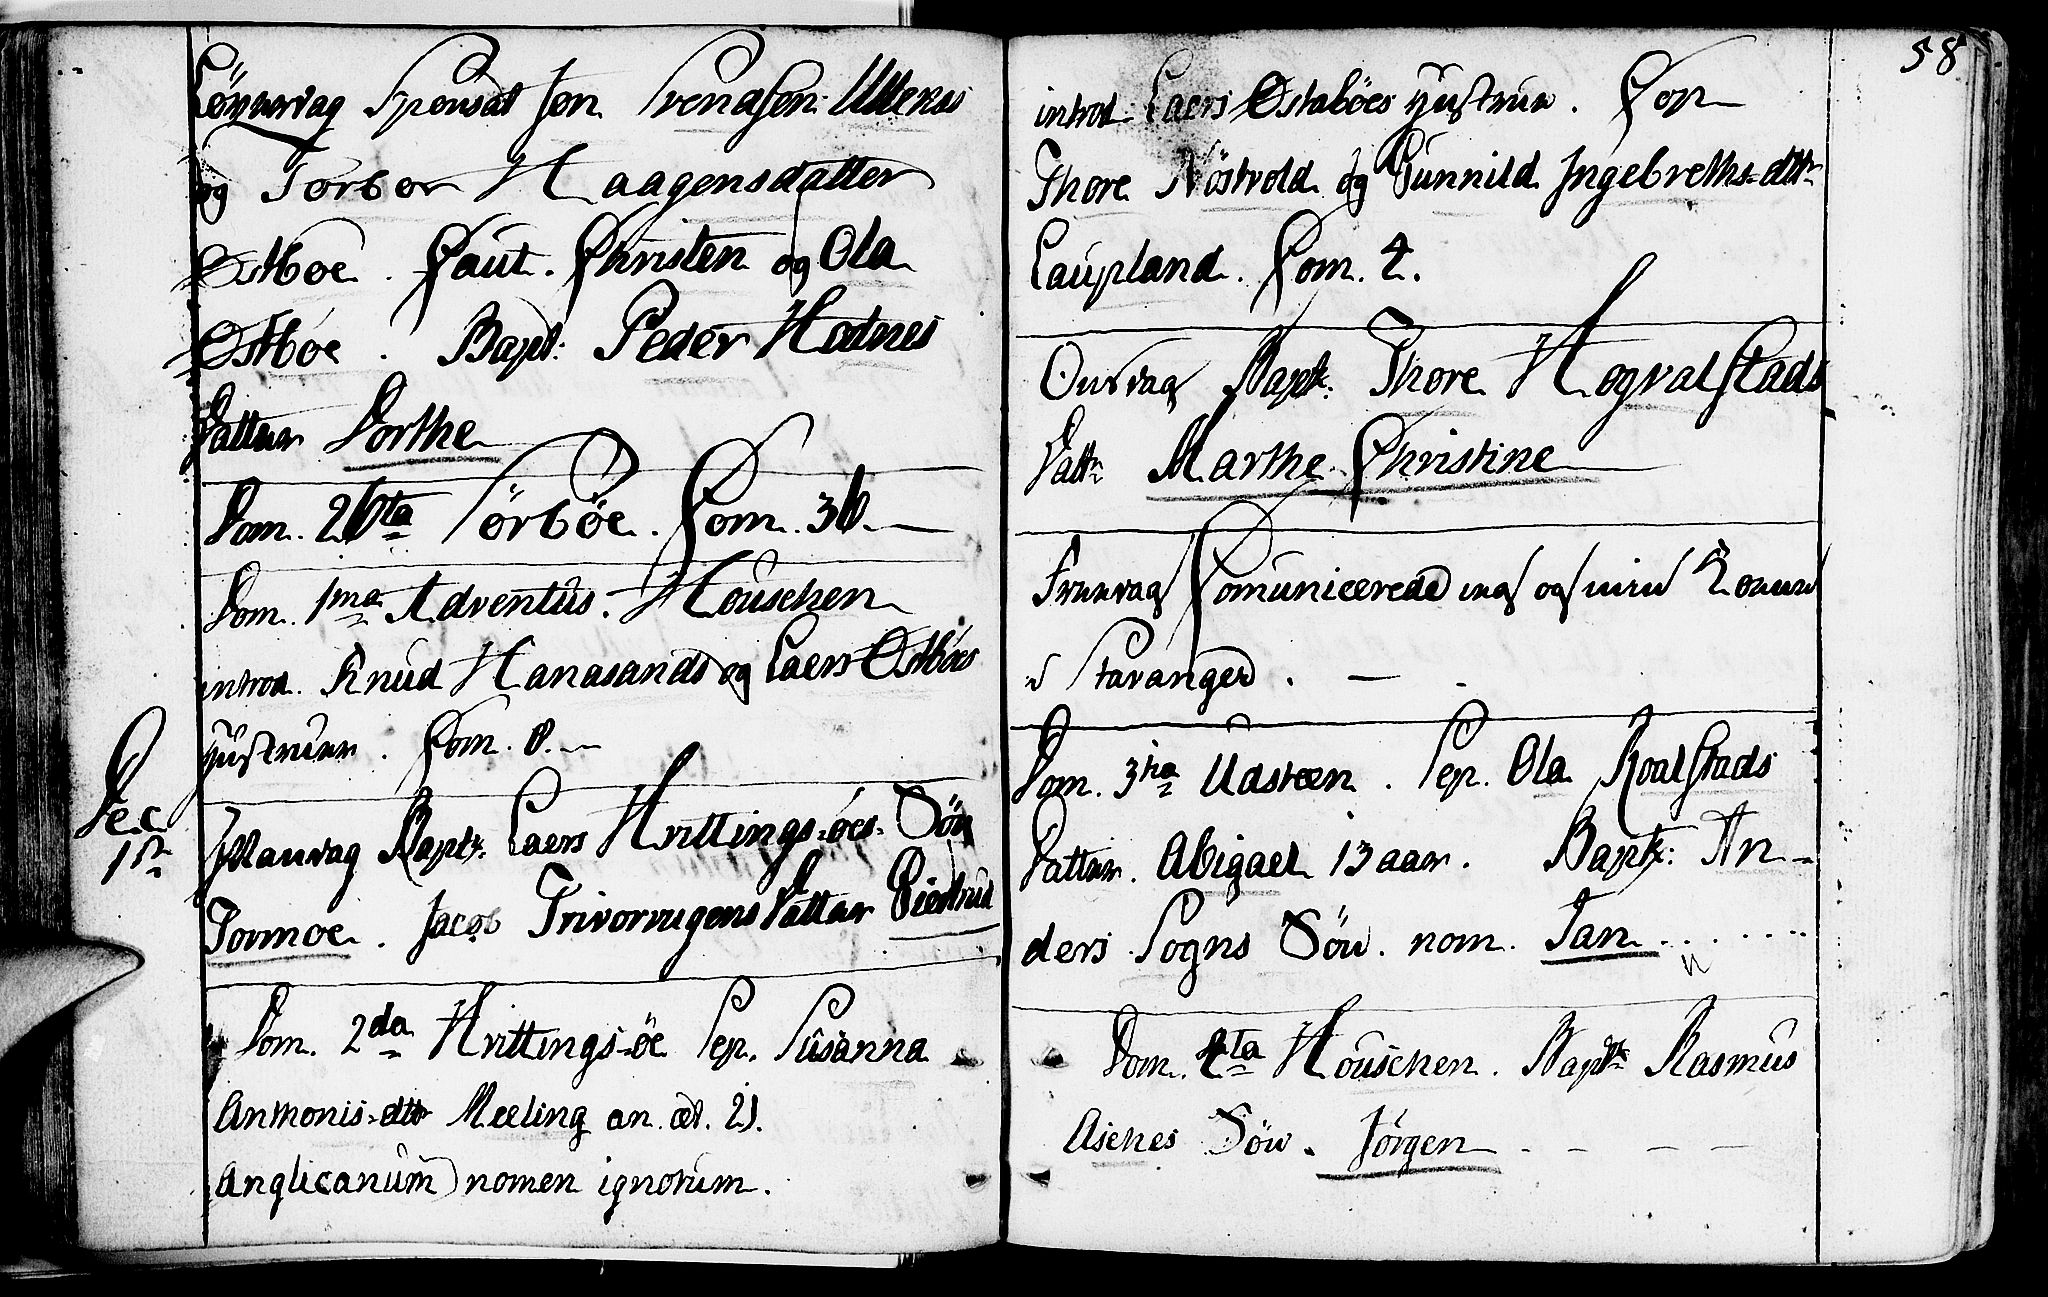 Löverdag Sponsat Jon Svendsen Udtenes
og Torbor Haagensdatter
Østbøe. Caut. Christen og Ola
Østbøe. Bapt: Peder Hodnes
Datter Dorthe
Dom. 26ta Sörböe. Com. 36.
Dom. 1ma Adventûs. Houschen
introd. Knud Hanasands og Laers Østbøes
Hustruer. Com. 8.
Dec.
1ste
Mandag Bapt. Laers Hvittings-øes Sön
Tormoe. Jacob Datter Giertrud
Dom. 2da Hvittings-öe Sep. Susanna
Anthonis-dttr Meeling an. æt. 21.
Anglicanum nomen ignotum.
58
introd. Laers Østabôes Hustrue. Cop
Thore Nöstvold og Gunnild Jngebreths-dttr
Laupland. Com. 4.
Onsdag Bapt. Thore Hogvalstads
Dattr Marthe Christine
Fredag Comunicerede ieg og min Kone
i Stavanger.
Dom. 3tia Udsteen. Sep. Ola Roalstads
Datter. Abigael 13 aar. Bapt: An-
ders Sogns Sön. nom. Jan
Dom. 4ta Houschen. Bapt Rasmus
Askes Sön. Jörgen